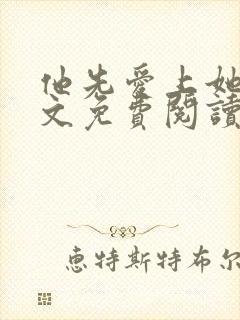 他先愛上她
文免費閱讀
惠特斯特布尔